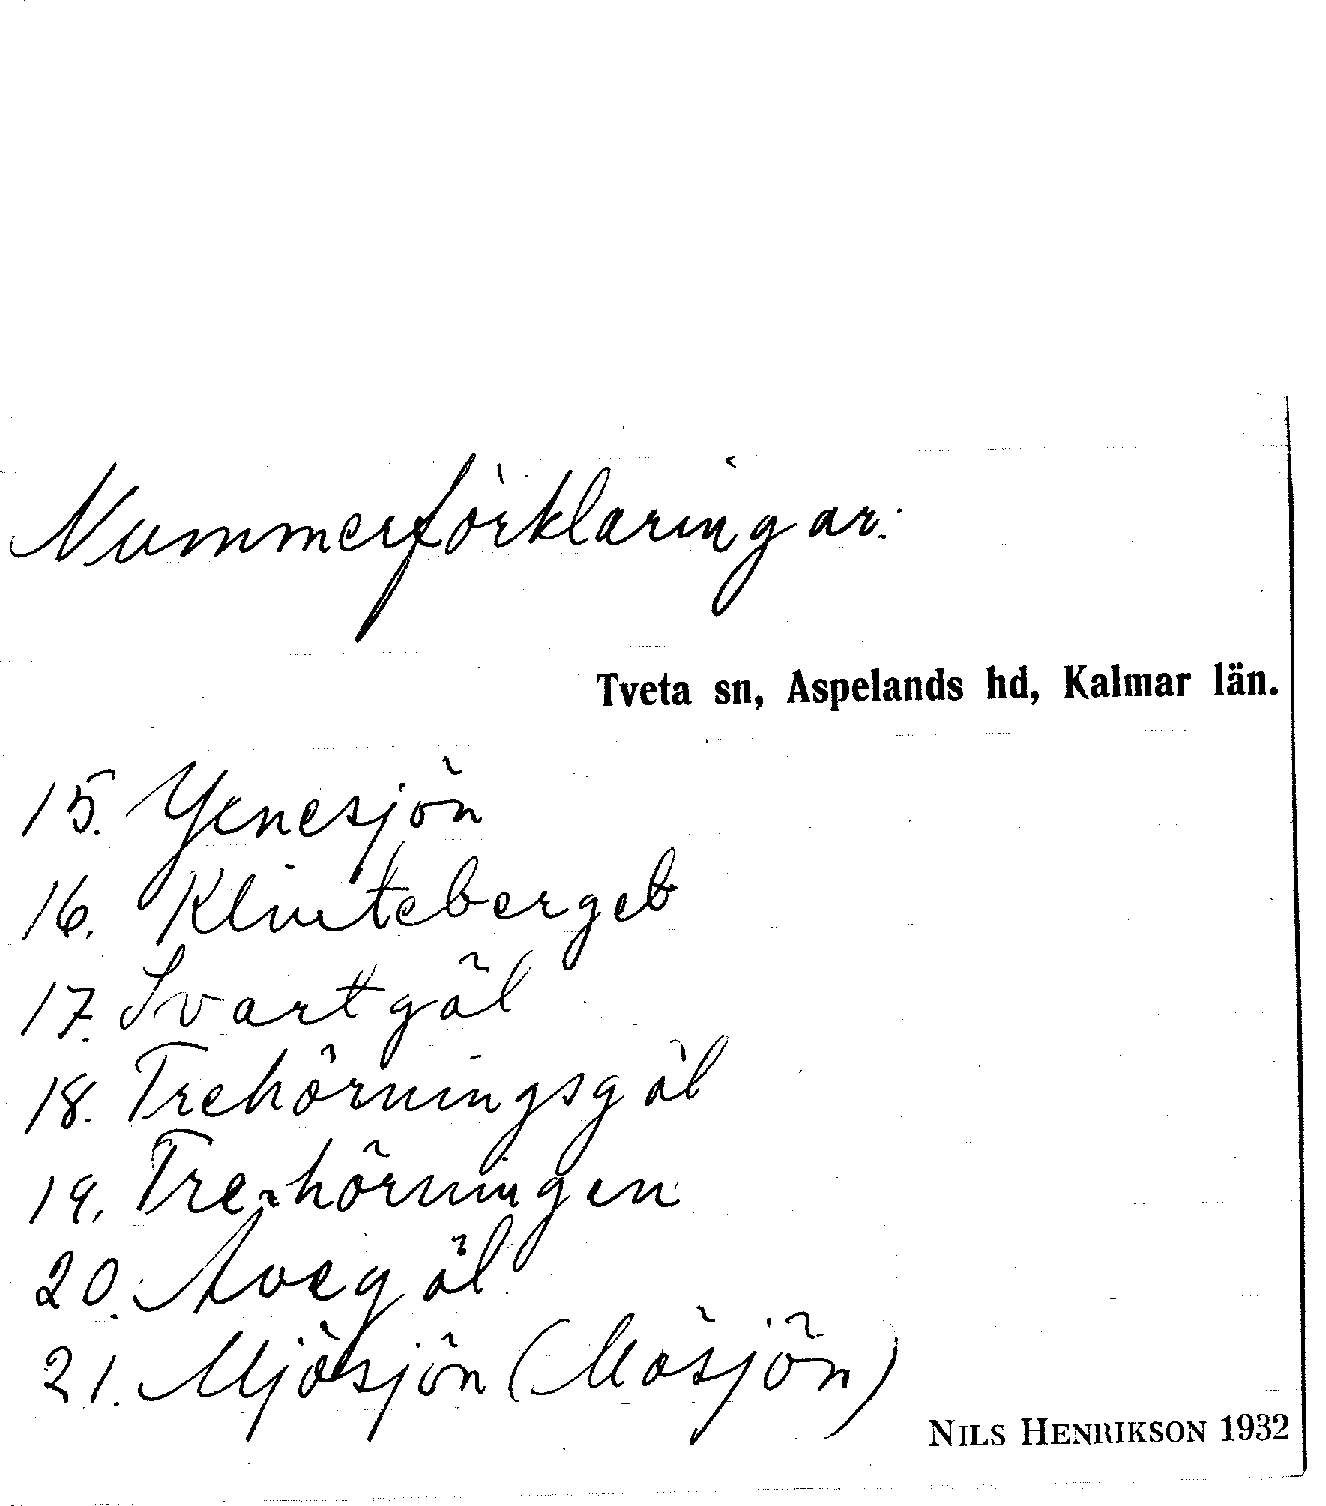 Nummerförklaringar:
Tveta sn, Aspelands hd, Kalmar län.
15. Yenesjön
16. Klinteberget
17. Svartgöl
18. Trehörningsgöl
19. Trehörningen
20. Avegöl
21. Mjösjön (Mösjön)
NILS HENRIKSON 1932